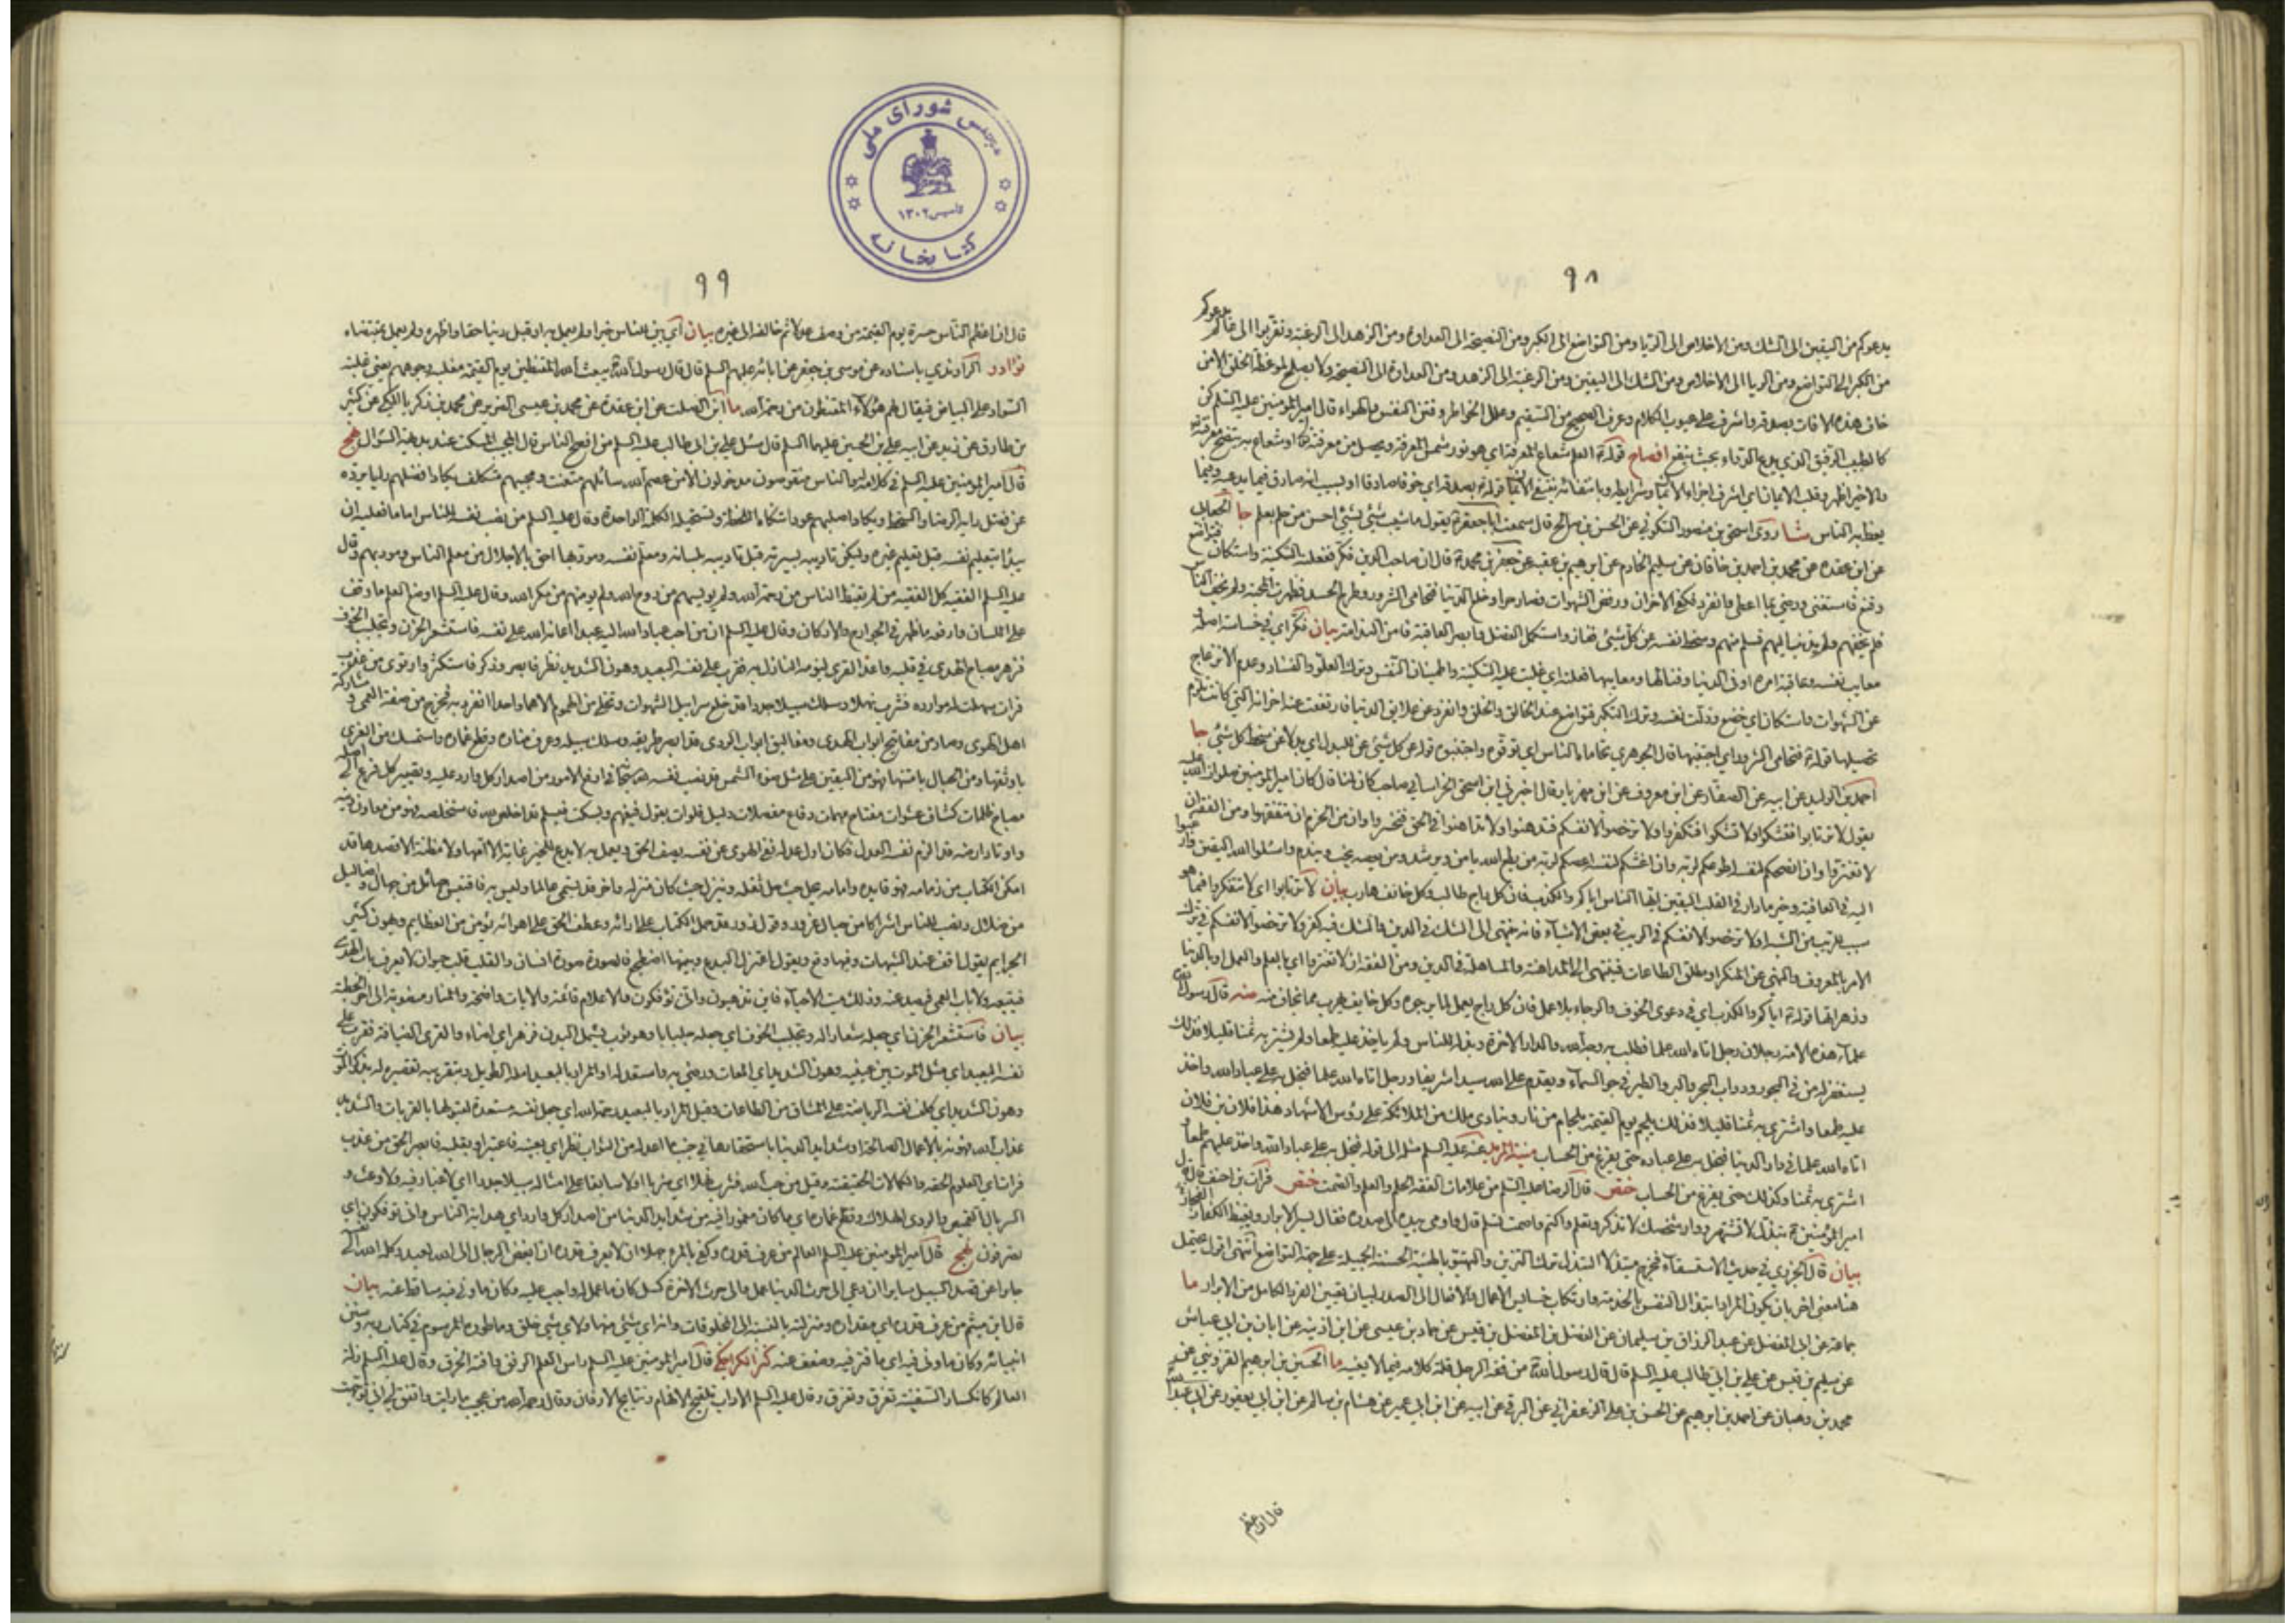 ٩٨
يدعوكم من اليقين الى الشك ومن الاخلاص الى الريا ومن التواضع الى الكبر ومن النصيحة الى العداوة ومن الزهد الى الرغبة وتقربوا الى عالم يدعوكم
من الكبر الى التواضع ومن الريا الى الاخلاص ومن الشك الى اليقين ومن الرغبة الى الزهد ومن العداوة الى النصيحة ولا يصلح لموعظة الخلق الا من
خاف هذه الافات بصدقه واشرف على عيوب الكلام وعرف الصحيح من السقيم وعلل الخواطر وفتن النفس والهواء قال امير المؤمنين عليه السلم كن
كالطبيب الرفيق الذي يدع الدواء بحيث ينفع ايضاح قوله العلم شعاع المعرفة اي هو نور شمس المعرفة ويحصل من معرفته او شعاع به يتضح معرفته
والاخير اظهر وقلب الايمان اي اشرف اجزاء الايمان وشرايطه وبانتفائه ينتفي الايمان قوله بصدقه اي خوفا صادقا او بسبب انه صادق فيما يدعيه وفيما
يعظ به الناس شا روى اسحق بن منصور السكوني عن الحسن بن صالح قال سمعت ابا جعفر يقول ما شيب شئ بشئ احسن من حلم بعلم جا الجعابي
عن ابن عقدة عن محمد بن احمد بن خاقان عن سليم الخادم عن ابراهيم بن عقبة عن جعفر بن محمد قال ان صاحب الدين فكر فعلته السكينة واستكان فتواضع
وقنع فاستغنى ورضي بما اعطى وانفرد فكفى الاخزان ورفض الشهوات فصار حرا وخلع الدنيا فتحامى الشرور وطرح الحسد فظهرت المحبة ولم يخف الناس
فلم يخفهم ولم يذنب اليهم فسلم منهم وسخط نفسه عن كل شئ ففاز واستكمل الفضل وابصر العافية فامن الندامة بيان فكر اي في خساسة اصله
معايب نفسه وعاقبة امره او في الدنيا وفنائها ومعايبها فعلته اي غلبت عليه السكينة واطمينان النفس وترك العلو والفساد وعدم الانزعاج
عن الشهوات واستكان اي خضع وذلت نفسه وترك التكبر فتواضع عند الخالق والخلق وانفرد عن علايق الدنيا فارتفعت عنه احزانه التي كانت تلزم
تحصيلها قوله فتحامى الشرور اي اجتنبها قال الجوهري تحاماه الناس اي توقوه واجتنبوه قوله عن كل شئ عن للبدل اي بدلا عن سخط كل شئ جا
احمد بن الوليد عن ابيه عن الصفار عن ابن معروف عن ابن مهزيار قال اخبرني ابن اسحق الخراساني صاحب كان لنا قال كان امير المؤمنين صلوات الله عليه
يقول لا ترتابوا فتشكوا ولا تشكوا فتكفروا ولا ترخصوا لانفسكم فتدهنوا ولا تداهنوا في الحق فتخسروا وان من الحزم ان تتفقهوا ومن الفقه ان
لا تغتروا وان انصحكم لنفسه اطوعكم لربه وان اغشكم لنفسه اعصاكم لربه من يطع الله يامن ويرشد ومن يعصه يخب ويندم واسئلوا الله اليقين وارغبوا
اليه في العافية وخير ما دار في القلب اليقين ايها الناس اياكم والكذب فان كل راج طالب وكل خائف هارب بيان لا ترتابوا اي لا تتفكروا فيما هو
سبب للريب من الشبه او لا ترخصوا لانفسكم في الريب في بعض الاشياء فانه ينتهي الى الشك في الدين والشك فيه كفر ولا ترخصوا لانفسكم في ترك
الامر بالمعروف والنهي عن المنكر او مطلق الطاعات فينتهى الى المداهنة والمساهلة في الدين ومن الفقه ان لا تغتروا اي بالعلم والعمل او بالدنيا
وزهراتها قوله اياكم والكذب اي في دعوى الخوف والرجاء بلا عمل فان كل راج يعمل لما يرجوه وكل خايف يهرب مما يخاف منه منه قال رسول الله
علماء هذه الامة رجلان رجل اتاه الله علما فطلب به وجه الله والدار الاخرة وبذله للناس ولم ياخذ عليه طمعا ولم يشتر به ثمنا قليلا فذلك
يستغفر له من في البحور ودواب البحر والبر والطير في جو السماء ويقدم على الله سيدا شريفا ورجل اتاه الله علما فبخل به على عباد الله واخذ
عليه طمعا واشترى به ثمنا قليلا فذلك يلجم يوم القيمة بلجام من نار وينادي ملك من الملائكة على رؤس الاشهاد هذا فلان بن فلان
اتاه الله علما في دار الدنيا فبخل به على عباده حتى يفرغ من الحساب منية المريد عنه عليه السلم مثله الى قوله فبخل به على عباد الله واخذ عليهم طمعا
اشترى به ثمنا وكذلك حتى يفرغ من الحساب ختص قال الرضا عليه السلم من علامات الفقه الحلم والعلم والصمت ختص فرات بن احنف قال قال
امير المؤمنين تبذل لا تشتهر ووار شخصك لا تذكر وتعلم واكتم واصمت تسلم قال واومى بيده الى صدره فقال يسر الابرار ويغيظ الكفار الفجار
بيان قال الجزري في حديث الاستسقاء فخرج متبذلا التبذل ترك التزين والتهيئ بالهيئة الحسنة الجميلة على جهة التواضع انتهى اقول يحتمل
هنا معنى اخر بان يكون المراد ابتذال النفس بالخدمة وارتكاب خسايس الاعمال والايماء الى الصدر لبيان تعيين الفرد الكامل من الابرار ما
جماعة عن ابي المفضل عن عبد الرزاق بن سليمان عن الفضل بن المفضل بن قيس عن حماد بن عيسى عن ابن اذينة عن ابان بن ابي عياش
عن سليم بن قيس عن علي بن ابي طالب عليه السلم قال قال رسول الله من فقه الرجل قلة كلامه فيما لا يعنيه ما الحسين بن ابراهيم القزويني عن
محمد بن وهبان عن احمد بن ابراهيم عن الحسن بن علي الزعفراني عن البرقي عن ابيه عن ابن ابي عمير عن هشام بن سالم عن ابن ابي يعفور عن ابي عبد الله
قال ان اعظم
مجلس شورای ملی
تاسیس ١٣٠٢
کتابخانه
٩٩
قال ان اعظم الناس حسرة يوم القيمة من وصف عدلا ثم خالفه الى غيره بيان اي بين للناس خيرا ولم يعمل به او قبل دينا حقا واظهره ولم يعمل بمقتضاه
نوادر الراوندي باسناده عن موسى بن جعفر عن ابائه عليهم السلم قال قال رسول الله يبعث الله المقنطين يوم القيمة مغلبة وجوههم يعني غلبة
السواد على البياض فيقال لهم هؤلاء المقنطون من رحمة الله ما ابن الصلت عن ابن عقدة عن محمد بن عيسى الضرير عن محمد بن زكريا المكي عن كثير
بن طارق عن زيد عن ابيه علي بن الحسين عليهما السلم قال سئل علي بن ابي طالب عليه السلم من افصح الناس قال المجيب المسكت عند بديهة السؤال نهج
قال امير المؤمنين عليه السلم في كلام له والناس منقوصون مدخولون الا من عصم الله سائلهم متعنت ومجيبهم متكلف يكاد افضلهم رايا يرده
عن فضل رايه الرضا والسخط ويكاد اصلبهم عودا تنكاه اللحظة وتستحيله الكلمة الواحدة وقال عليه السلم من نصب نفسه للناس اماما فعليه ان
يبدا بتعليم نفسه قبل تعليم غيره وليكن تاديبه بسيرته قبل تاديبه بلسانه ومعلم نفسه ومودبها احق بالاجلال من معلم الناس ومودبهم وقال
عليه السلم الفقيه كل الفقيه من لم يقنط الناس من رحمة الله ولم يويسهم من روح الله ولم يومنهم من مكر الله وقال عليه السلم اوضع العلم ما وقف
على اللسان وارفعه ما ظهر في الجوارح والاركان وقال عليه السلم ان من احب عباد الله اليه عبدا اعانه الله على نفسه فاستشعر الحزن وتجلبب الخوف
فزهر مصباح الهدى في قلبه واعد القرى ليومه النازل به فقرب على نفسه البعيد وهون الشديد نظر فابصر وذكر فاستكثر وارتوى من عذب
فرات سهلت له موارده فشرب نهلا وسلك سبيلا جددا قد خلع سرابيل الشهوات وتخلى من الهموم الا هما واحدا انفرد به فخرج من صفة العمى و مشاركة
اهل الهوى وصار من مفاتيح ابواب الهدى ومغاليق ابواب الردى قد ابصر طريقه وسلك سبيله وعرف مناره وقطع غماره واستمسك من العرى
باوثقها ومن الحبال بامتنها فهو من اليقين على مثل ضوء الشمس قد نصب نفسه لله سبحانه في ارفع الامور من اصدار كل وارد عليه وتصيير كل فرع الى اصله
مصباح ظلمات كشاف عشوات مفتاح مبهمات دفاع معضلات دليل فلوات يقول فيفهم ويسكت فيسلم قد اخلص لله فاستخلصه فهو من معادن دينه
واوتاد ارضه قد الزم نفسه العدل فكان اول عدله نفي الهوى عن نفسه يصف الحق ويعمل به لا يدع للخير غاية الا امها ولا مظنة الا قصدها قد
امكن الكتاب من زمامه فهو قايده وامامه يحل حيث حل ثقله وينزل حيث كان منزله واخر قد يسمى عالما وليس به فاقتبس جهائل من جهال واضاليل
من ضلال ونصب للناس اشراكا من حبال غرور وقول زور قد حمل الكتاب على ارائه وعطف الحق على اهوائه يؤمن من العظايم ويهون كبير
الجرايم يقول اقف عند الشبهات وفيها وقع ويقول اعتزل البدع وبينها اضطجع فالصورة صورة انسان والقلب قلب حيوان لا يعرف باب الهدى
فيتبعه ولا باب العمى فيصد عنه وذلك ميت الاحياء فاين تذهبون وانى تؤفكون والاعلام قائمة والايات واضحة والمنار منصوبة الى اخر الخطبة
بيان فاستشعر الحزن اي جعله شعارا له وتجلبب الخوف اي جعله جلبابا وهو ثوب يشمل البدن فزهر اي اضاء والقرى الضيافة فقرب على
نفسه البعيد اي مثل الموت بين عينيه وهون الشديد اي الموت ورضي به واستعد له او المراد بالبعيد امله الطويل وبتقريبه تقصيره له بذكر الموت
وهون الشديد اي كلف نفسه الرياضة على المشاق من الطاعات وقيل المراد بالبعيد رحمة الله اي جعل نفسه مستعدة لقبولها بالقربات والشديد
عذاب الله فهونه بالاعمال الصالحة او شدايد الدنيا باستحقارها في جنب ما اعد له من الثواب نظر اي بعينه فاعتبر او بقلبه فابصر الحق من عذب
فرات اي العلوم الحقة والكمالات الحقيقية وقيل من حب الله فشرب نهلا اي شربا اولا سابقا على امثاله سبيلا جددا اي لا غبار فيه ولا وعث و
السربال القميص والردى الهلاك وقطع غماره اي ما كان مغمورا فيه من شدايد الدنيا من اصدار كل وارد اي هداية الناس وانى تؤفكون اي
تصرفون نهج قال امير المؤمنين عليه السلم العالم من عرف قدره وكفى بالمرء جهلا ان لا يعرف قدره ان ابغض الرجال الى الله لعبد وكله الله الى نفسه
جايرا عن قصد السبيل سايرا ان دعي الى حرث الدنيا عمل والى حرث الاخرة كسل كان ما عمل له واجب عليه وكان ما ونى فيه ساقط عنه بيان
قال ابن ميثم من عرف قدره اي مقداره ومنزلته بالنسبة الى المخلوقات وانه اي شئ منها ولاي شئ خلق وما طوره المرسوم في كتاب ربه وسنن
انبيائه وكان ما ونى فيه اي ما فتر فيه وضعف عنه كنز الكراجكي قال امير المؤمنين عليه السلم راس العلم الرفق وافته الخرق وقال عليه السلم زلة
العالم كانكسار السفينة تغرق وتغرق وقال عليه السلم الاداب تلقيح الافهام ونتايج الاذهان وقال رحمه الله من عجيب ما رايت واتفق لي اني توجهت